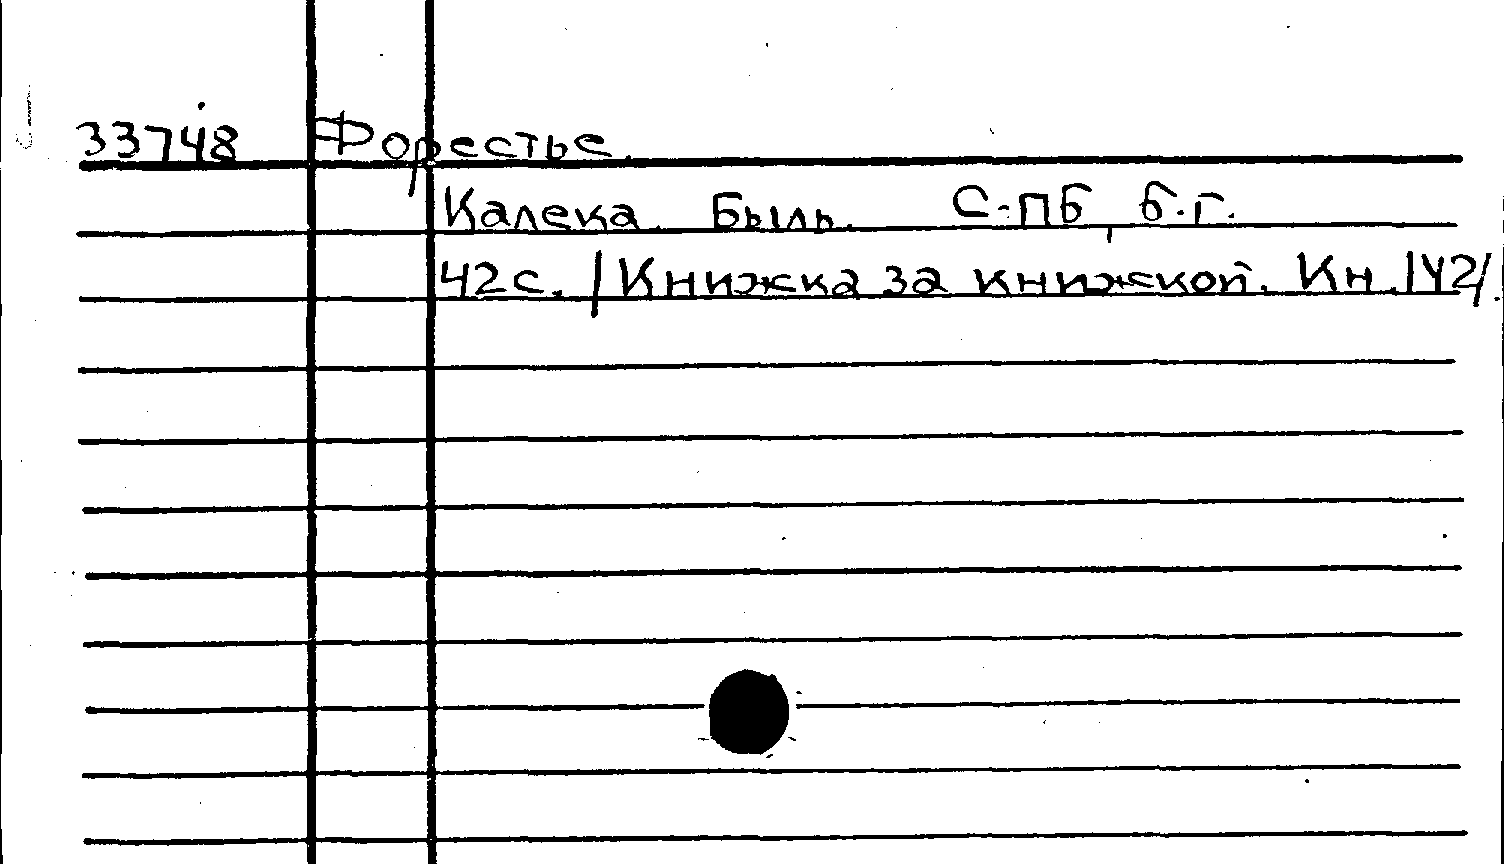 33748 Форестье.
Калека. Быль. С-ПБ, б.г.
42с. /Книжка за книжкой. Кн.142/.